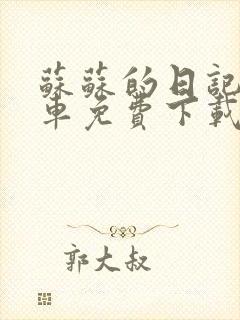 蘇蘇的日記
車免費下載
郭大叔